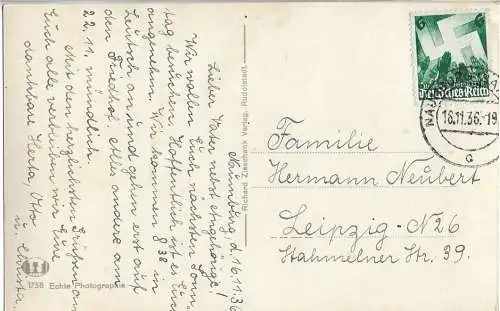 Naumburg d. 16.11.36
Lieber Vater nebst Angehörige!
Wir wollen Euch nächsten Sonn-
tag besuchen. Hoffentlich ist es Euch
angenehm. Wir kommen 8 38 in
Leutzsch an und gehen erst auf
den Friedhof. Alles andere am
22.11. mündlich.
Mit den herzlichsten Grüßen an
Euch alle verbleiben wir Eure
dankbare Herta, Otto
u. Christa.
1756 Echte Photographie
Richard Zieschank Verlag, Rudolstadt.
6 6
Deutsches Reich
NAUMBURG
16.11.36.-19
a
Familie
Hermann Neubert
Leipzig-N26
Stahmelner Str. 39.